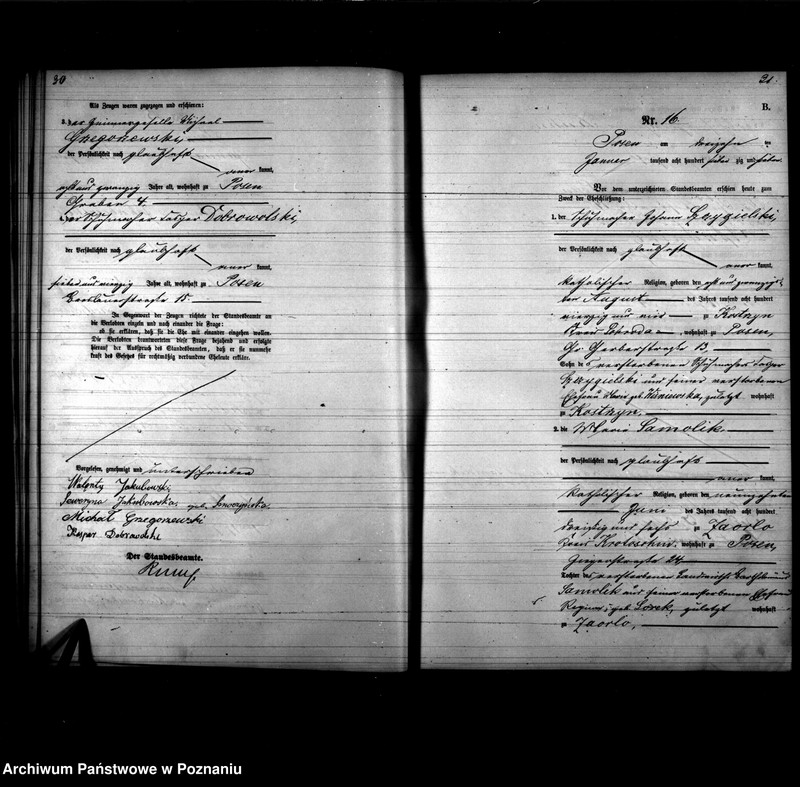 30
Als Zeugen waren zugezogen und erschienen:
3. der Michael
Gregorzewski,
der Persönlichkeit nach glaubhaft
kannt,
acht und zwanzig Jahre alt, wohnhaft zu Posen
Graben 4.
4. der Schuhmacher Dobrowolski,
der Persönlichkeit nach glaubhaft
kannt,
sieben und vierzig Jahre alt, wohnhaft zu Posen
Breslauerstraße 15.
In Gegenwart der Zeugen richtete der Standesbeamte an
die Verlobten einzeln und nach einander die Frage:
ob sie erklären, daß sie die Ehe mit einander eingehen wollen.
Die Verlobten beantworteten diese Frage bejahend und erfolgte
hierauf der Ausspruch des Standesbeamten, daß er sie nunmehr
kraft des Gesetzes für rechtmäßig verbundene Eheleute erkläre.
Vorgelesen, genehmigt und unterschrieben
Walenty Jakubowski
Seweryna Jakubowska geb.
Michał Gregorzewski
Kaspar Dobrowolski
Der Standesbeamte.
31.
B.
Nr. 16.
Posen am dreizehn ten
Januar tausend acht hundert sieben zig und sieben
Vor dem unterzeichneten Standesbeamten erschien heute zum
Zweck der Eheschließung:
1. der Schuhmacher Johann
der Persönlichkeit nach glaubhaft
kannt,
katholischer Religion, geboren den acht und zwanzigsten
August des Jahres tausend acht hundert
vierzig und vier zu Kostrzyn
Kreis Schroda, wohnhaft zu Posen,
Gr. Gerberstraße 13.
Sohn des verstorbenen Schuhmacher
und seiner verstorbenen
Ehefrau geb. zuletzt wohnhaft
zu Kostrzyn.
2. die Samolik.
der Persönlichkeit nach glaubhaft
kannt,
katholischer Religion, geboren den neunzehnten
Juni des Jahres tausend acht hundert
dreißig und sechs zu
Kreis Krotoschin, wohnhaft zu Posen,
24
Tochter des verstorbenen
Samolik und seiner verstorbenen Ehefrau
Regina, geb. zuletzt wohnhaft
zu
Archiwum Państwowe w Poznaniu